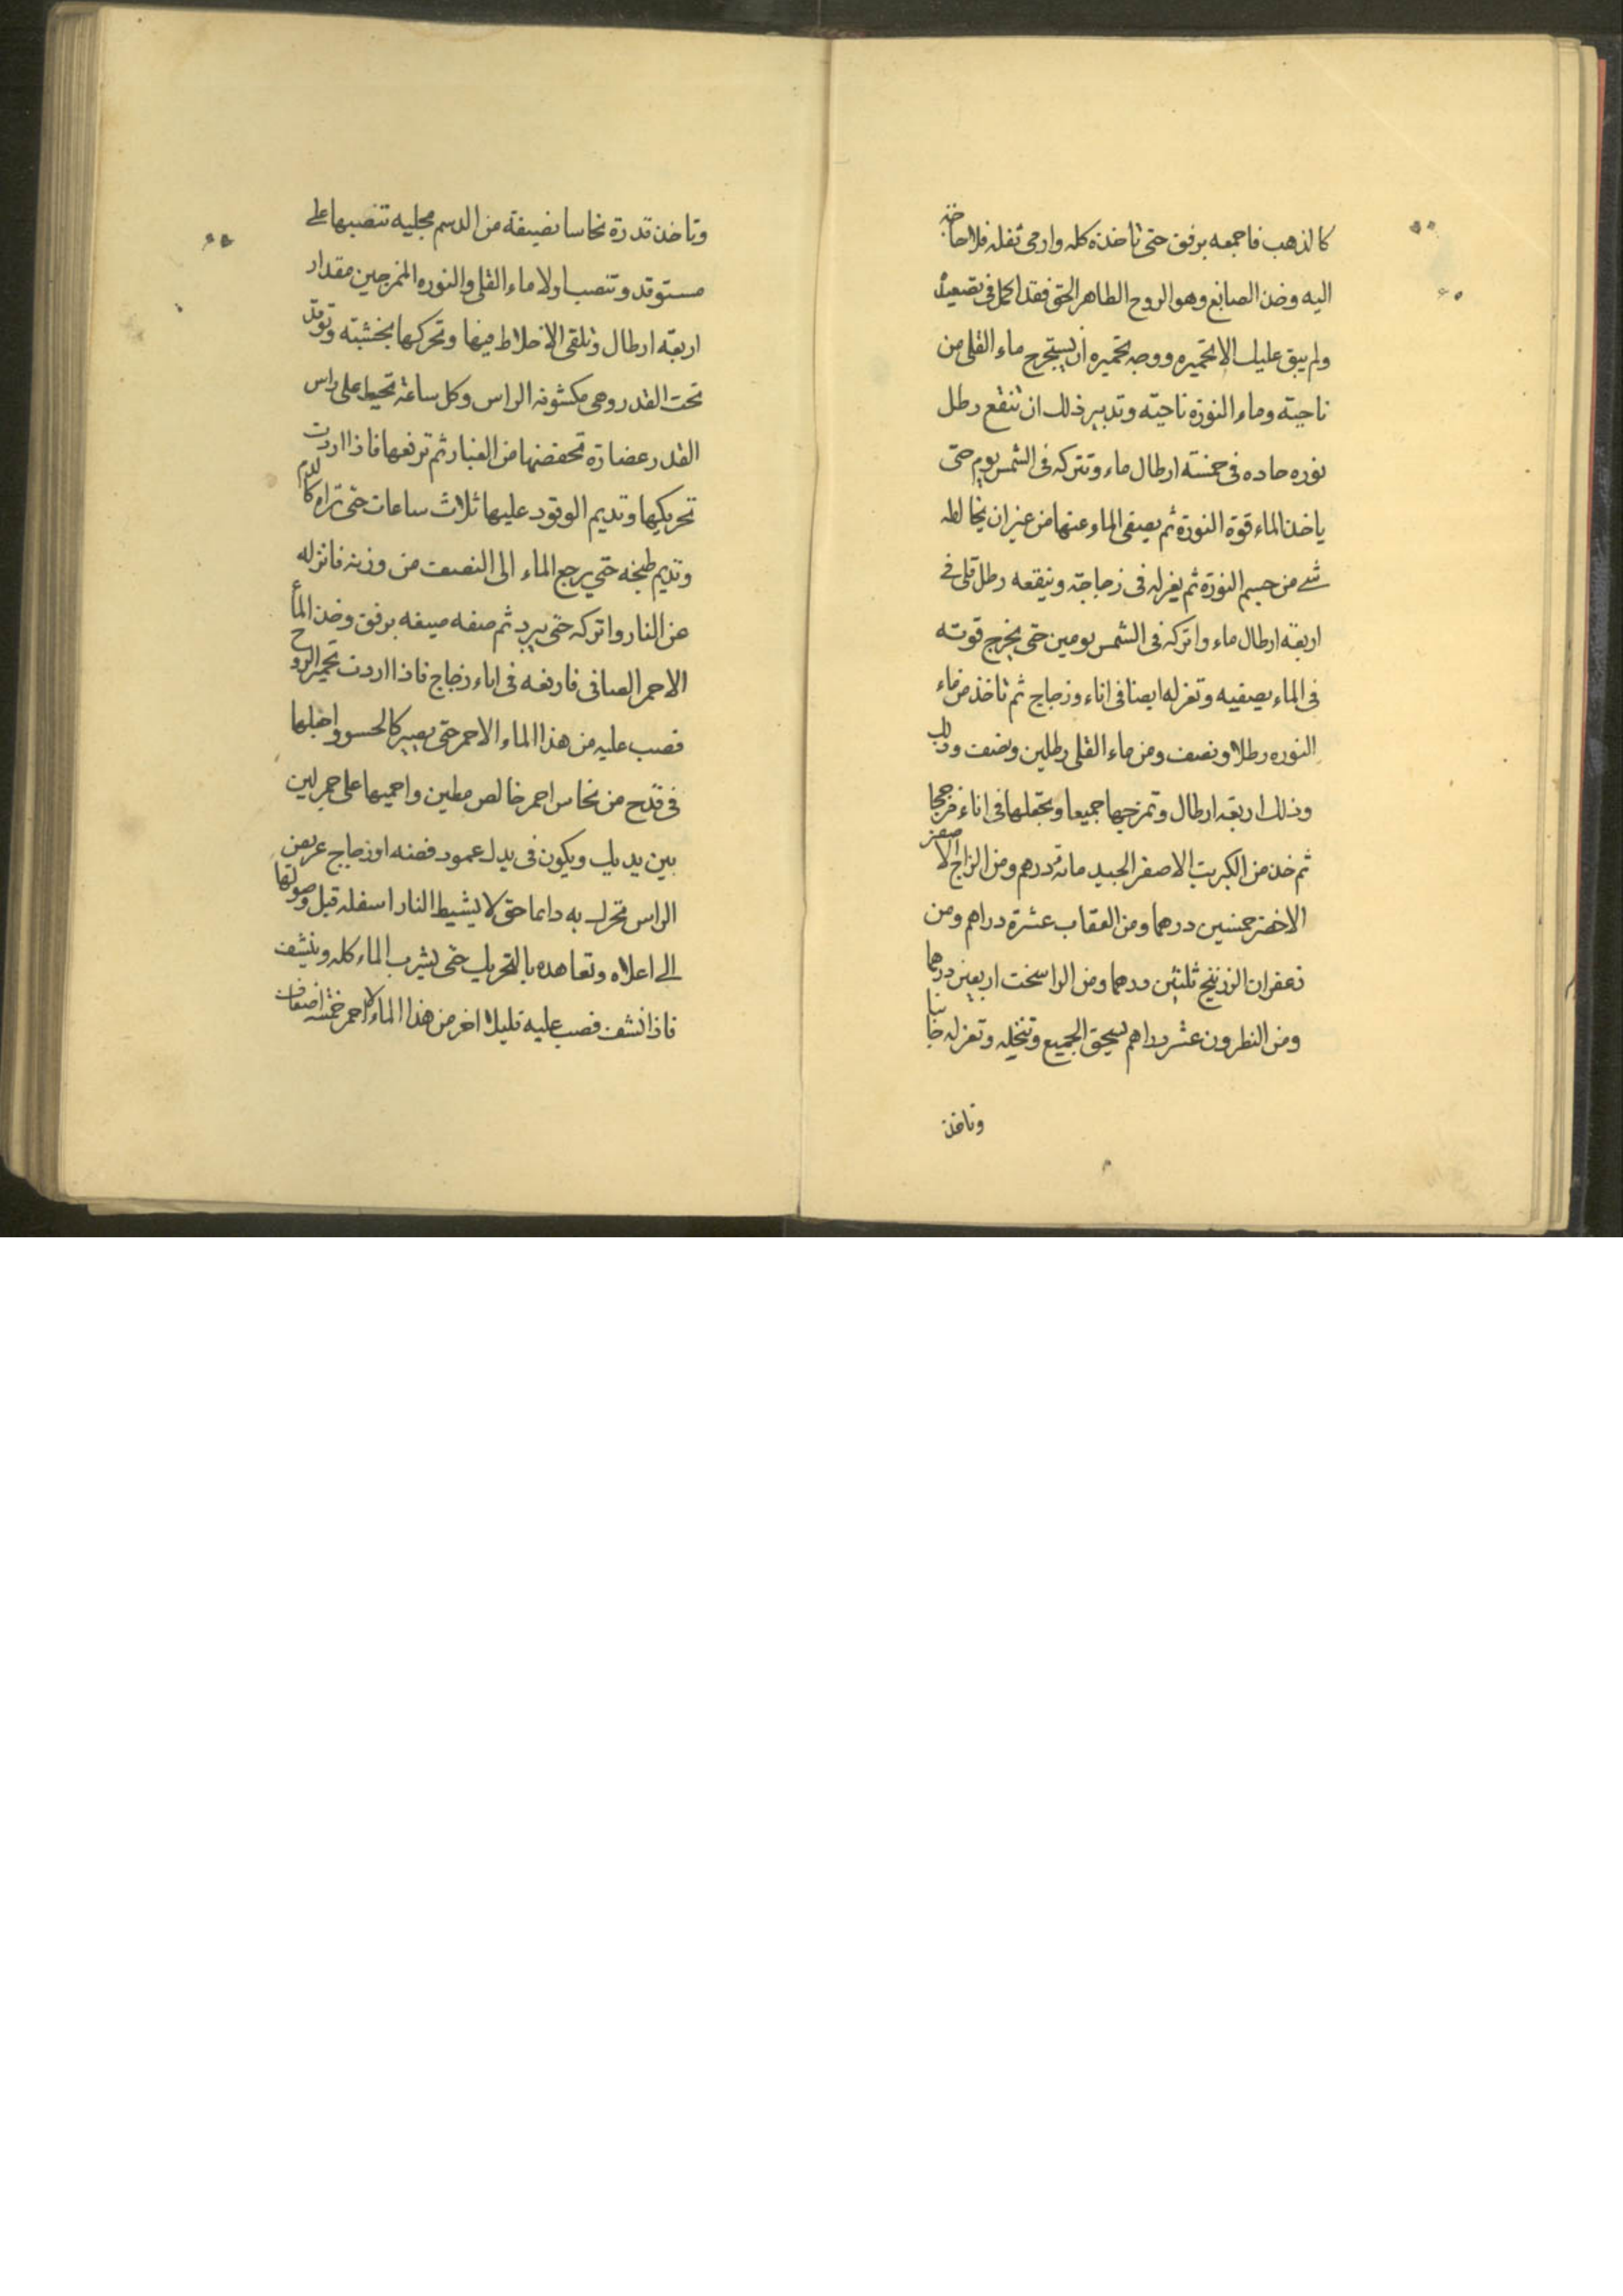 كالذهب فاجمعه برفق حتى تاخذه كله وارمى ثفله فلا حاجة
اليه وخذ الصابغ وهو الروح الطاهر الحق فقد اكمل فى تصعيد
ولم يبق عليك الا تحميره ووجه تحميره ان يستخرج ماء القلى من
ناحيته وماء النورة ناحيته وتدبير ذلك ان تنقع رطل
نوره حاده فى خمسة ارطال ماء وتتركه فى الشمس يوم حتى
ياخذ الماء قوة النورة ثم يصفى الماء عنها من غير ان يخالطه
شے من جسم النورة ثم يعزله فى زجاجة وينقعه رطل قلى فے
اربعة ارطال ماء واتركه فى الشمس يومين حتى يخرج قوته
فى الماء يصفيه وتعزله ايضا فى اناء وزجاج ثم تاخذ من ماء
النوره رطلا ونصف ومن ماء القلى رطلين ونصف وذلك
وذلك اربعة ارطال وتمزجها جميعا وتجعلها فى اناء
ثم خذ من الكبريت الاصفر الجيد مائة درهم ومن الزاج الاصفر
الاخضر خمسين درهما ومن العقاب عشرة دراهم ومن
زعفران الزرنيخ ثلثين درهما ومن الراسخت اربعين درهما
ومن النطرون عشر دراهم يسحق الجميع وتنخله وتعزله جانبا
وتاخذ
وتاخذ قدرة نحاسا نضيفة من الدسم مجليه تنصبها علے
مستوقد وتنصب اولا ماء القلى والنوره الممزجين مقدار
اربعة ارطال وتلقى الاخلاط فيها وتحركها بخشبته وتوقد
تحت القدر وهى مكشوفه الراس وكل ساعة تحيط على راس
القدر عضارة تحفضها من الغبار ثم ترفعها فاذا اردت
تحريكها وتديم الوقود عليها ثلاث ساعات حتى تراه كالدم
وتديم طبخه حتى يرجع الماء الى النصف من وزنه فانزله
عن النار واتركه حتى يبرد ثم صفه صيفه برفق وخذ الماء
الاحمر الصافى فارفعه فى اناء زجاج فاذا اردت تحمير الروح
فصب عليه من هذا الماء الاحمر حتى يصير كالحسو واجعلها
فى قدح من نحاس احمر خالص مطين واحميها على جمر لين
بين يديك ويكون فى يدك عمود فضه او زجاج عريض
الراس تحرك به دائما حتى لا يشيط النار اسفله قبل وصولها
الى اعلاه وتعاهده بالتحريك حتى يشرب الماء كله وينشف
فاذا نشف فصب عليه قليلا اخر من هذا الماء الاحمر خمسة اضعاف